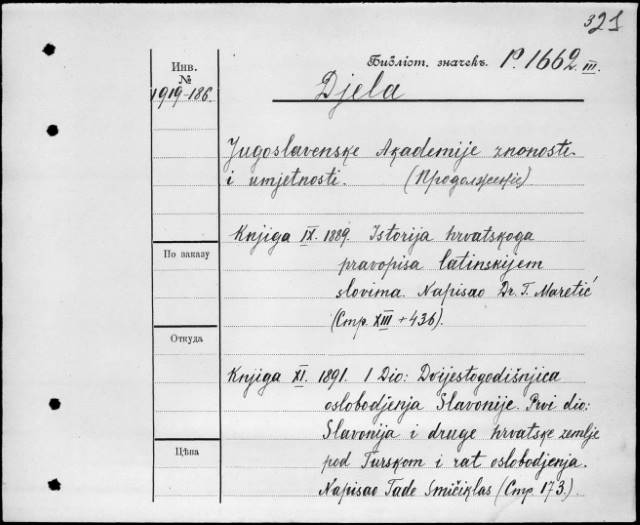 321
Инв.
№
1919-186.
Библіот. значекъ. P. 1662 III.
Djela
Jugoslavenske Akademije znanosti
i umjetnosti. (Продолженіе)
Knjiga IX. 1889. Istorija hrvatskoga
pravopisa latinskijem
slovima. Napisao Dr. T. Maretić
(Стр. XIII + 436).
По заказу
Откуда
Knjiga XI. 1891. I Dio: Dvijestogodišnjica
oslobodjenja Slavonije. Prvi dio:
Slavonija i druge hrvatske zemlje
pod Turskom i rat oslobodjenja.
Napisao Tade Smičiklas (Стр. 173.)
Цѣна